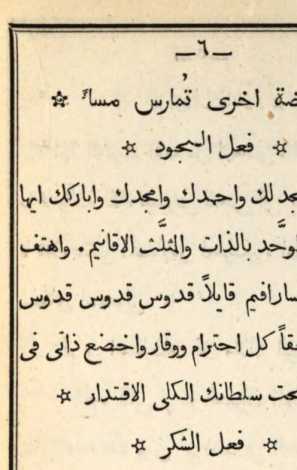 ـ٦ـ
ضة اخرى تُمارس مساءً ☆
☆ فعل السجود ☆
جد لك واحمدك وامجدك واباركك ايها
وحَّد بالذات والمثلَّث الاقانيم . واهتف
سارافيم قايلاً قدوس قدوس قدوس
قاً كل احترام ووقار واخضع ذاتى فى
حت سلطانك الكلى الاقتدار ☆
☆ فعل الشكر ☆